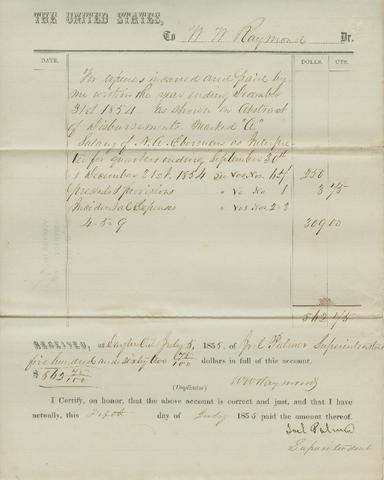 THE UNITED STATES,
To W W Raymond Dr.
DATE. DOLLS. CTS.
For expenses incurred and paid by
me within the year ending December
31st 1854 as shown in Abstract
of Disbursements Marked "A"
Salary of N. A. as Interpre
ter for quarters ending September 30th
& December 31st 1854 See Vos Nos. 1, 250
provisions " Vo No 1 3
Incidental Expenses " Vos Nos 2-3
4-5-9 309.00
562
RECEIVED, at Dayton O.T. July 5, 1855, of Joel Palmer Superintendent
five hundred and sixty two /100 dollars in full of this account.
$562 /100
(Duplicates) W W Raymond
I Certify, on honor, that the above account is correct and just, and that I have
actually, this day of July 1855 paid the amount thereof.
Joel Palmer
Superintendent